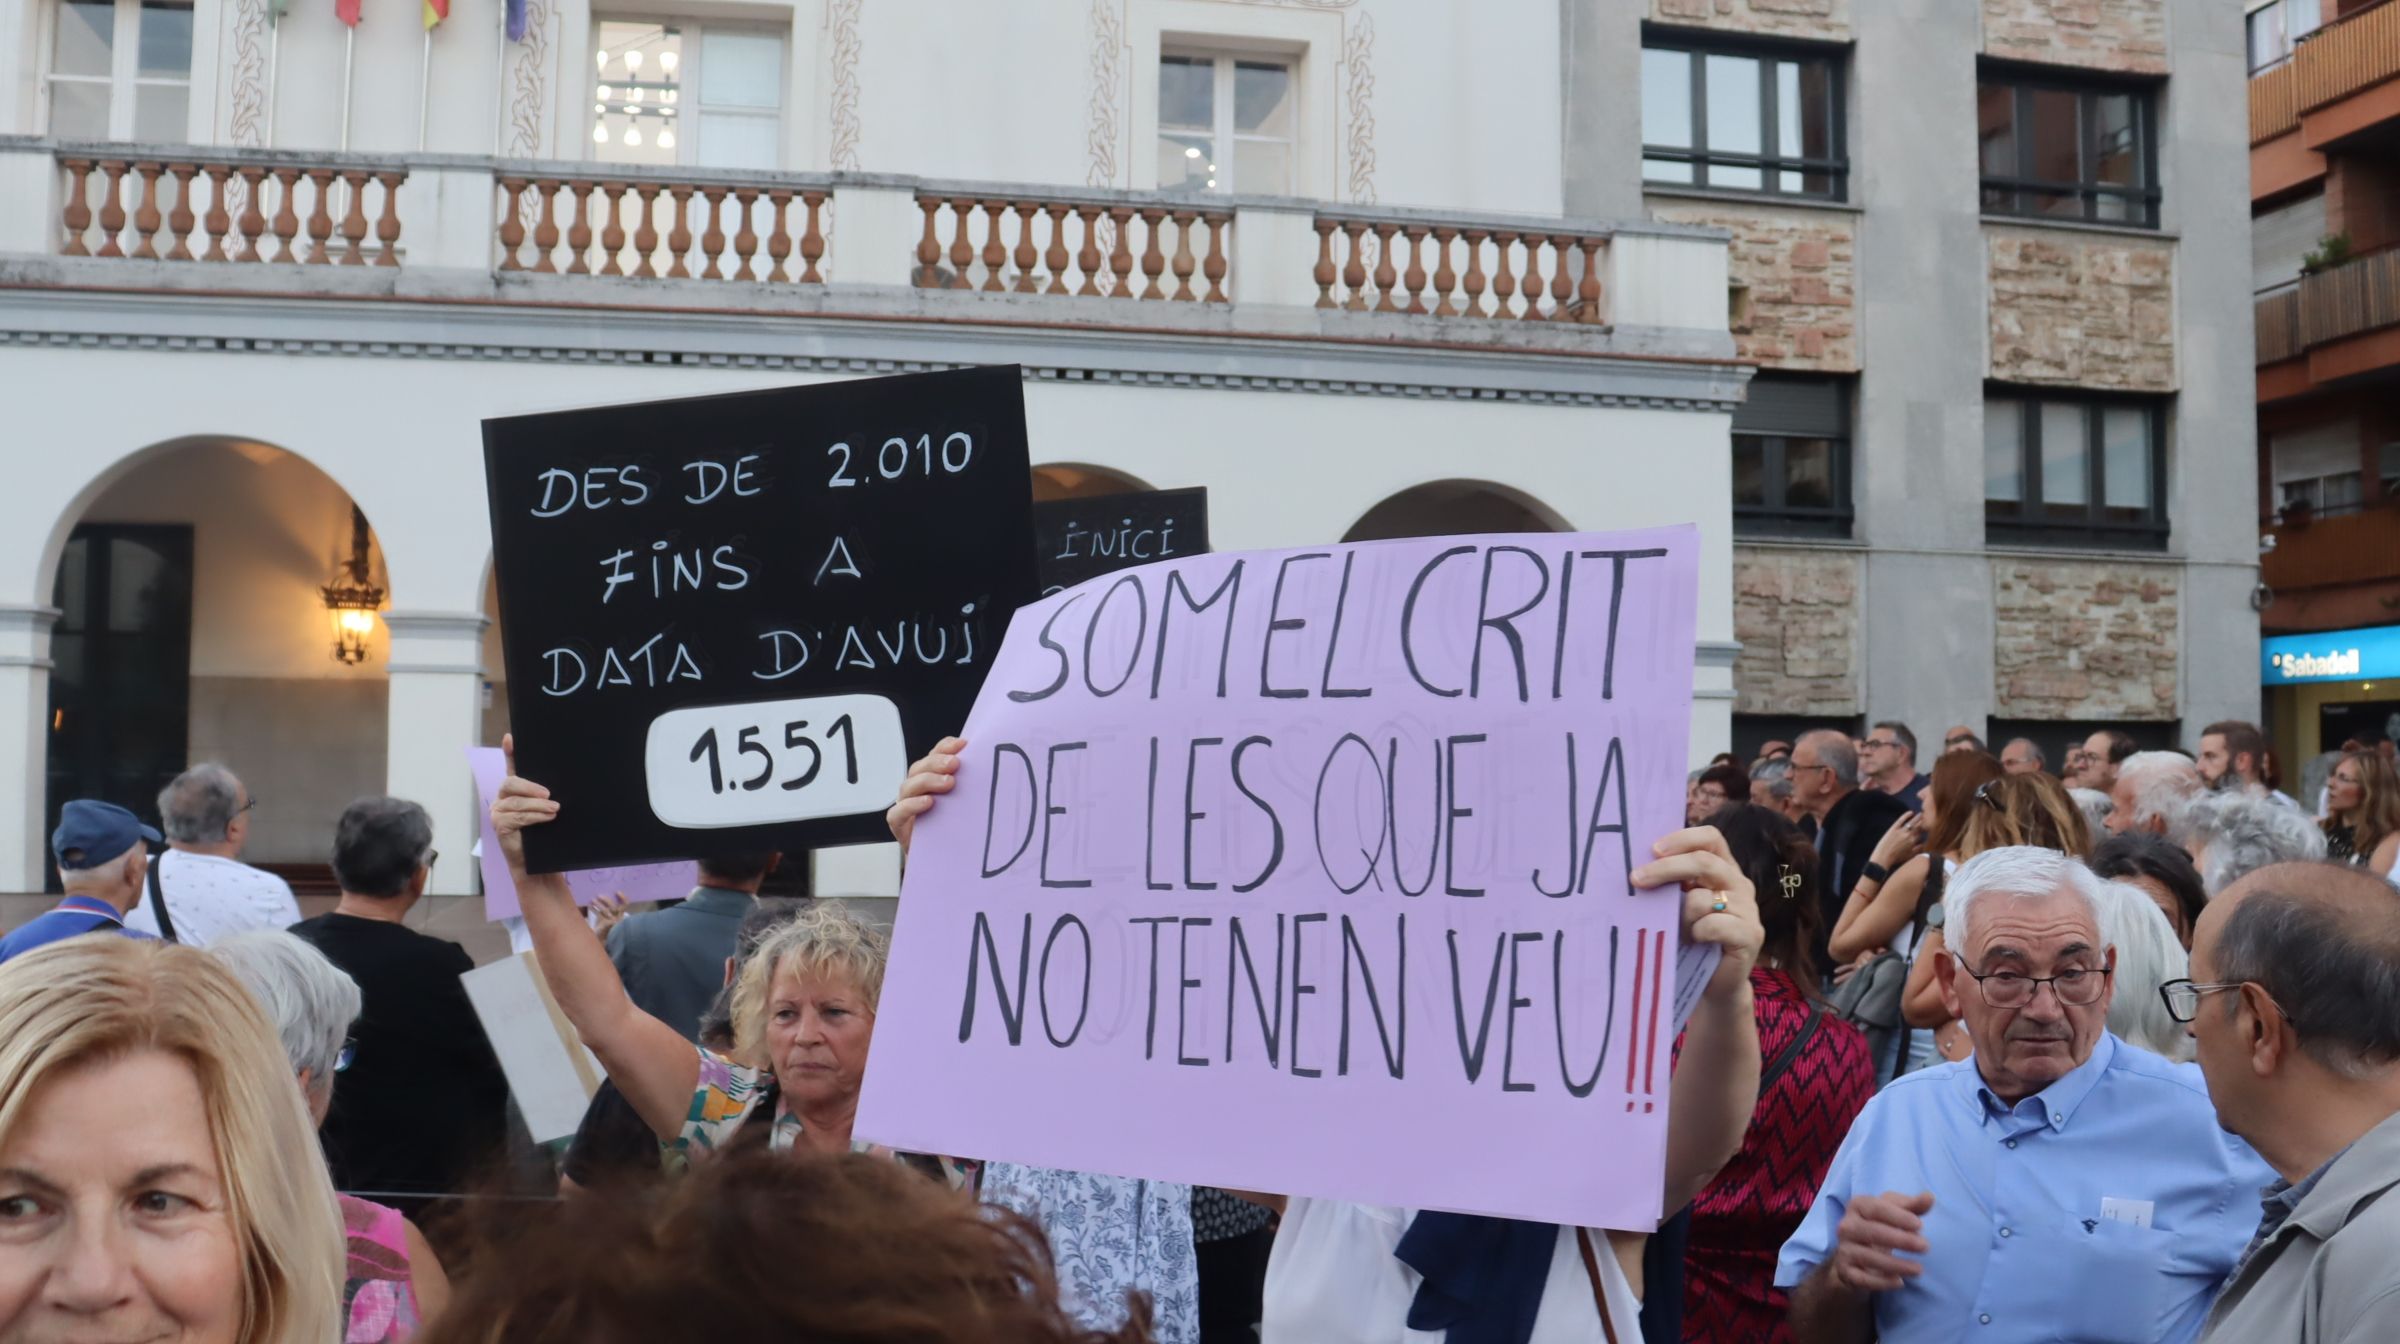 DES DE 2.010
FINS A
DATA D'AVUI
1.551
INICI
SOM EL CRIT
DE LES QUE JA
NO TENEN VEU!!
Sabadell